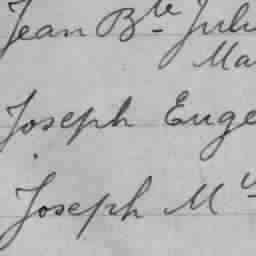 Jean Bte Jul
Ma
Joseph Euge
Joseph M